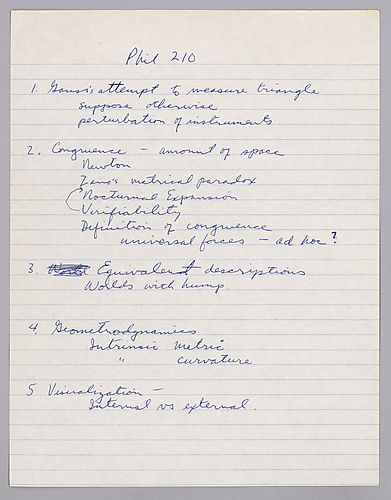 Phil 210
1. Gauss's attempt to measure triangle
suppose otherwise
perturbation of instruments
2. Congruence - amount of space
Newton
Zeno's metrical paradox
Nocturnal Expansion
Verifiability
Definition of congruence
universal forces - ad hoc?
3. Equivalent descriptions
Worlds with hump.
4. Geometrodynamics
Intrinsic metric
" curvature
5 Visualization -
Internal vs external.